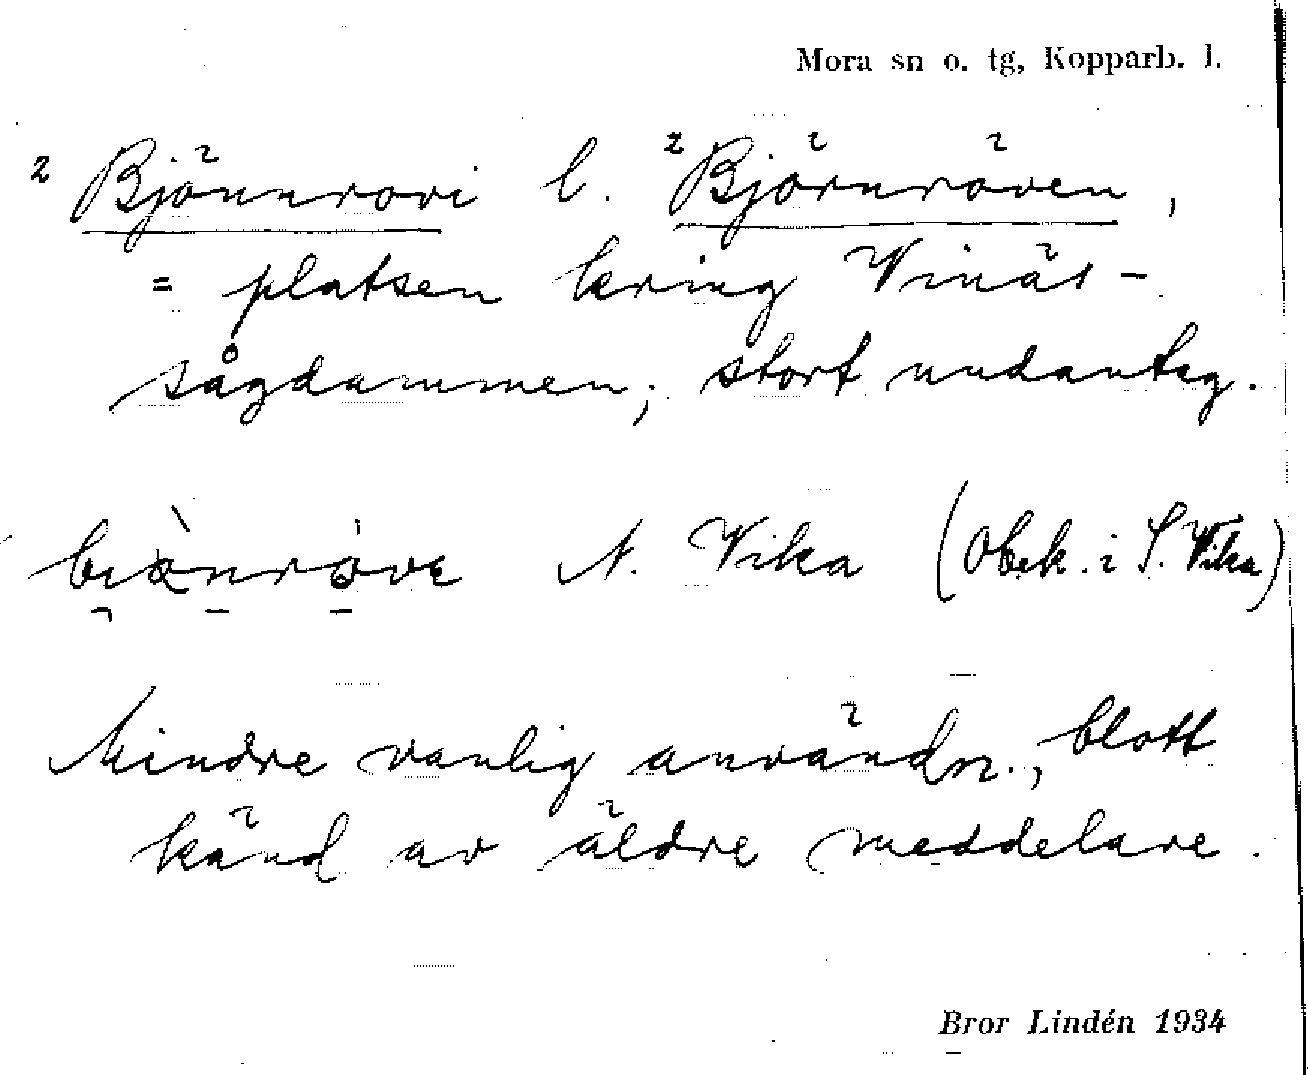 Mora sn o. tg, Kopparb. l.
2 Björnrovi l. 2 Björnröven,
= platsen kring Vinäs-
sågdammen; stort undantag.
N. Vika (Obek. i S. Vika)
Mindre vanlig användn., blott
känd av äldre meddelare.
Bror Lindén 1934